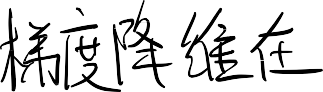 梯度降维在